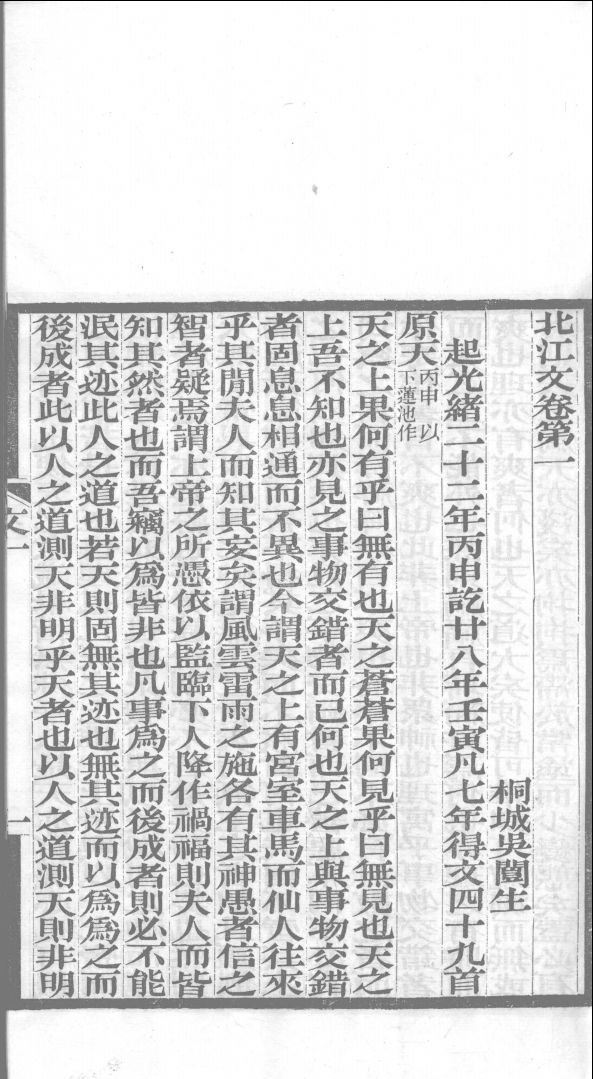 北江文卷第一
桐城吳闓生
起光緒二十二年丙申訖廿八年壬寅凡七年得文四十九首
原天丙申以下蓮池作
天之上果何有乎曰無有也天之蒼蒼果何見乎曰無見也天之
上吾不知也亦見之事物交錯者而已何也天之上與事物交錯
者固息息相通而不異也今謂天之上有宮室車馬而仙人往來
乎其閒夫人而知其妄矣謂風雲雷雨之施各有其神愚者信之
智者疑焉謂上帝之所憑依以監臨下人降作禍福則夫人而皆
知其然者也而吾竊以爲皆非也凡事爲之而後成者則必不能
泯其迹此人之道也若天則固無其迹也無其迹而以爲爲之而
後成者此以人之道測天非明乎天者也以人之道測天則非明
文一
一